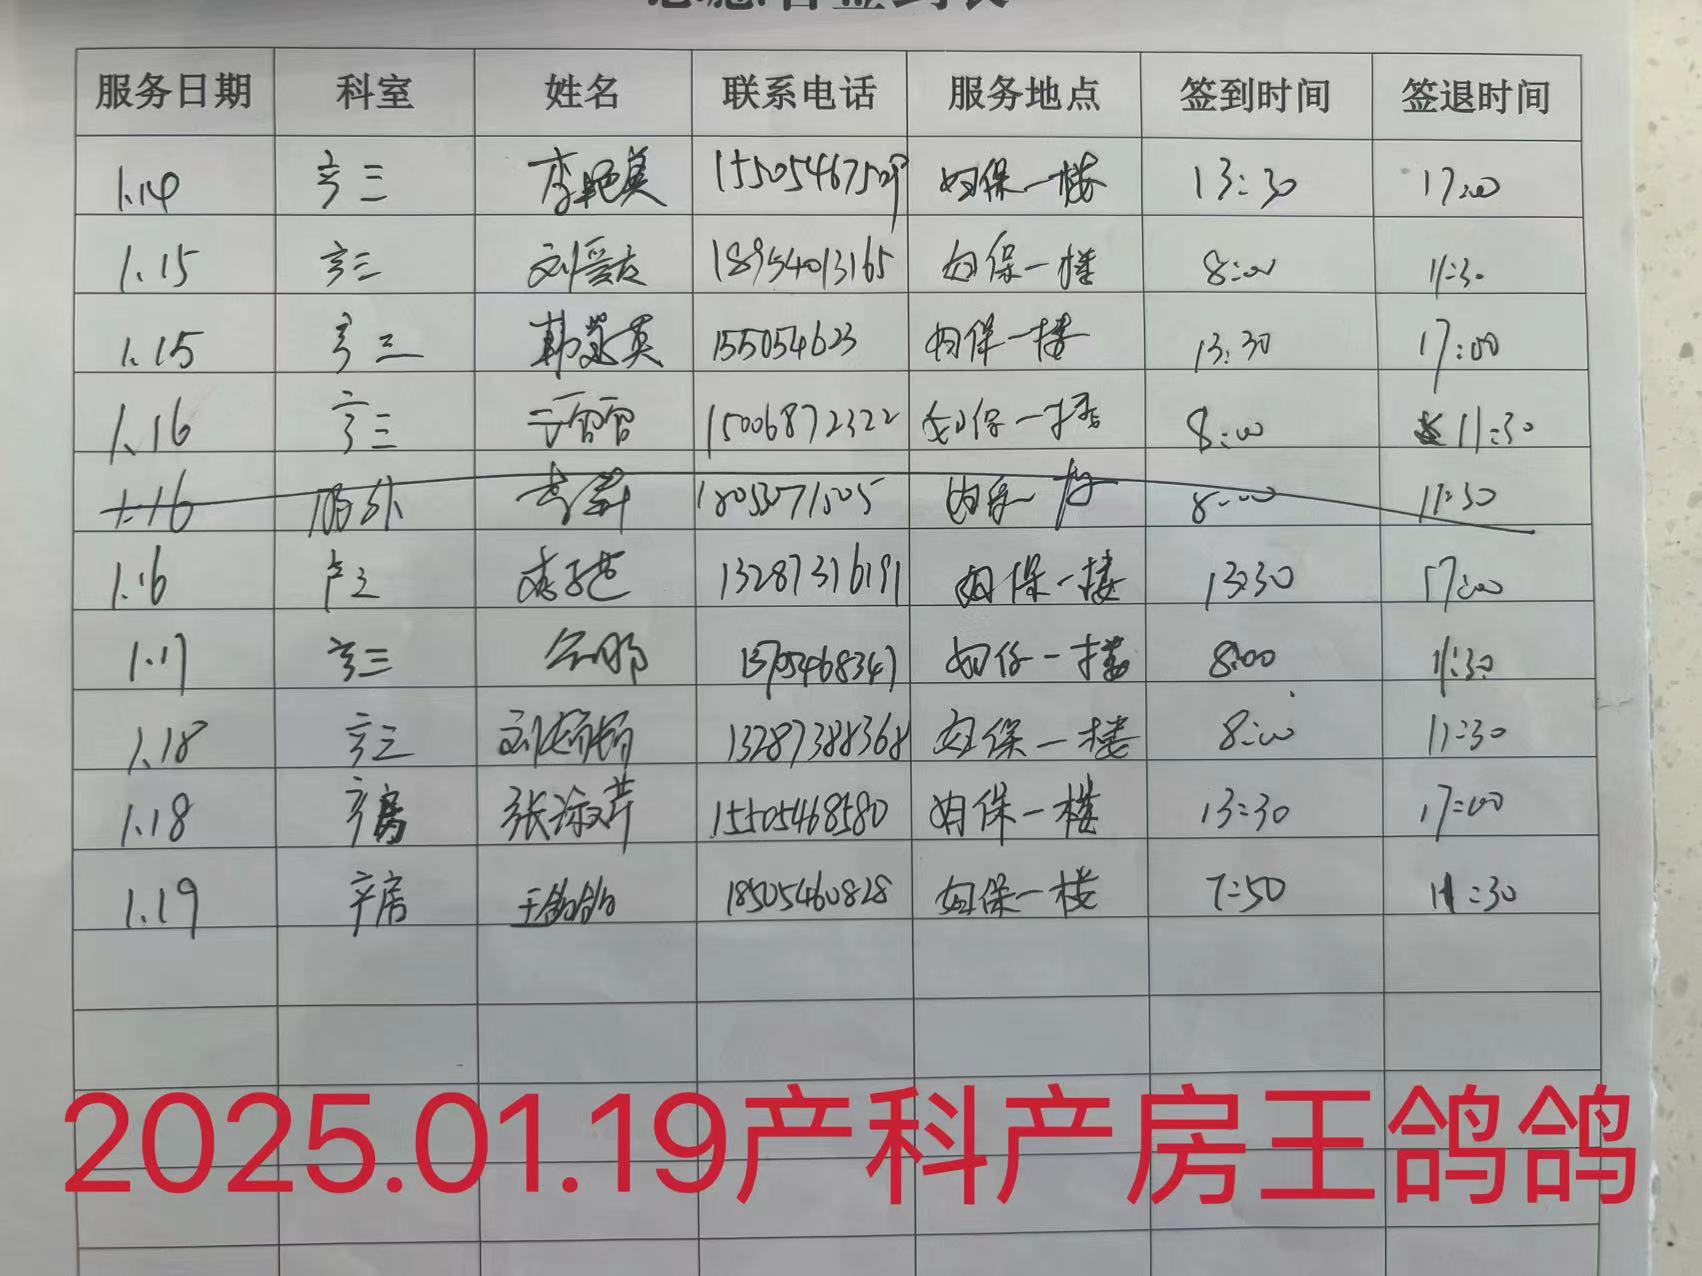 志愿者签到表
服务日期 科室 姓名 联系电话 服务地点 签到时间 签退时间
1.14 产三 李艳美 妇保一楼 13:30 17:00
1.15 产三 刘爱友 18954013165 妇保一楼 8:00 11:30
1.15 产三 155054623 妇保一楼 13:30 17:00
1.16 产三 15006872322 妇保一楼 8:00 11:30
1.16 妇保一楼 8:00 11:30
1.16 产三 13287316191 妇保一楼 13:30 17:00
1.17 产三 妇保一楼 8:00 11:30
1.18 产三 刘娇娇 13287388368 妇保一楼 8:00 11:30
1.18 产房 张淑芹 15505468580 妇保一楼 13:30 17:00
1.19 产房 王鸽鸽 18505460828 妇保一楼 7:50 11:30
2025.01.19产科产房王鸽鸽